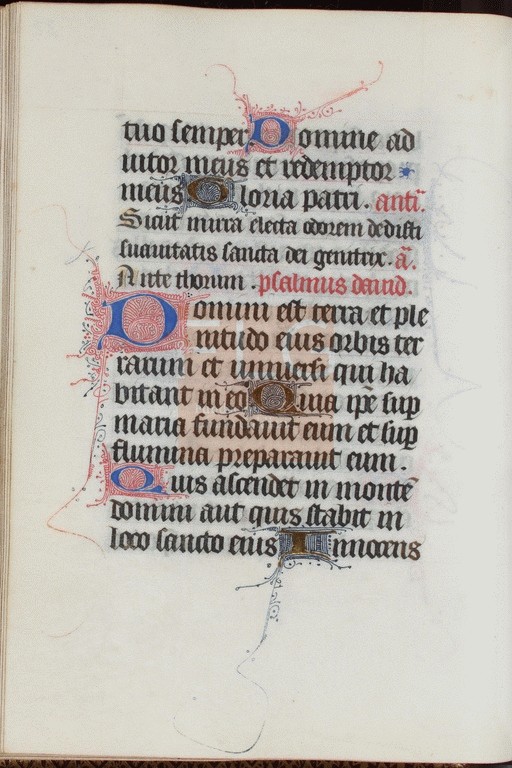 tuo semper Domine ad
iutor meus et redemptor
meus Gloria patri. antī.
Sicut mirra electa odorem dedisti
suauitatis sancta dei genitrix. ā.
Ante thorum. psalmus dauid.
Domini est terra et ple
nitudo eius orbis ter
rarum et uniuersi qui ha
bitant in eo Quia ip̄e sup
maria fundauit eum et sup
flumina preparauit eum.
Quis ascendet in montē
domini aut quis stabit in
loco sancto eius Innocens